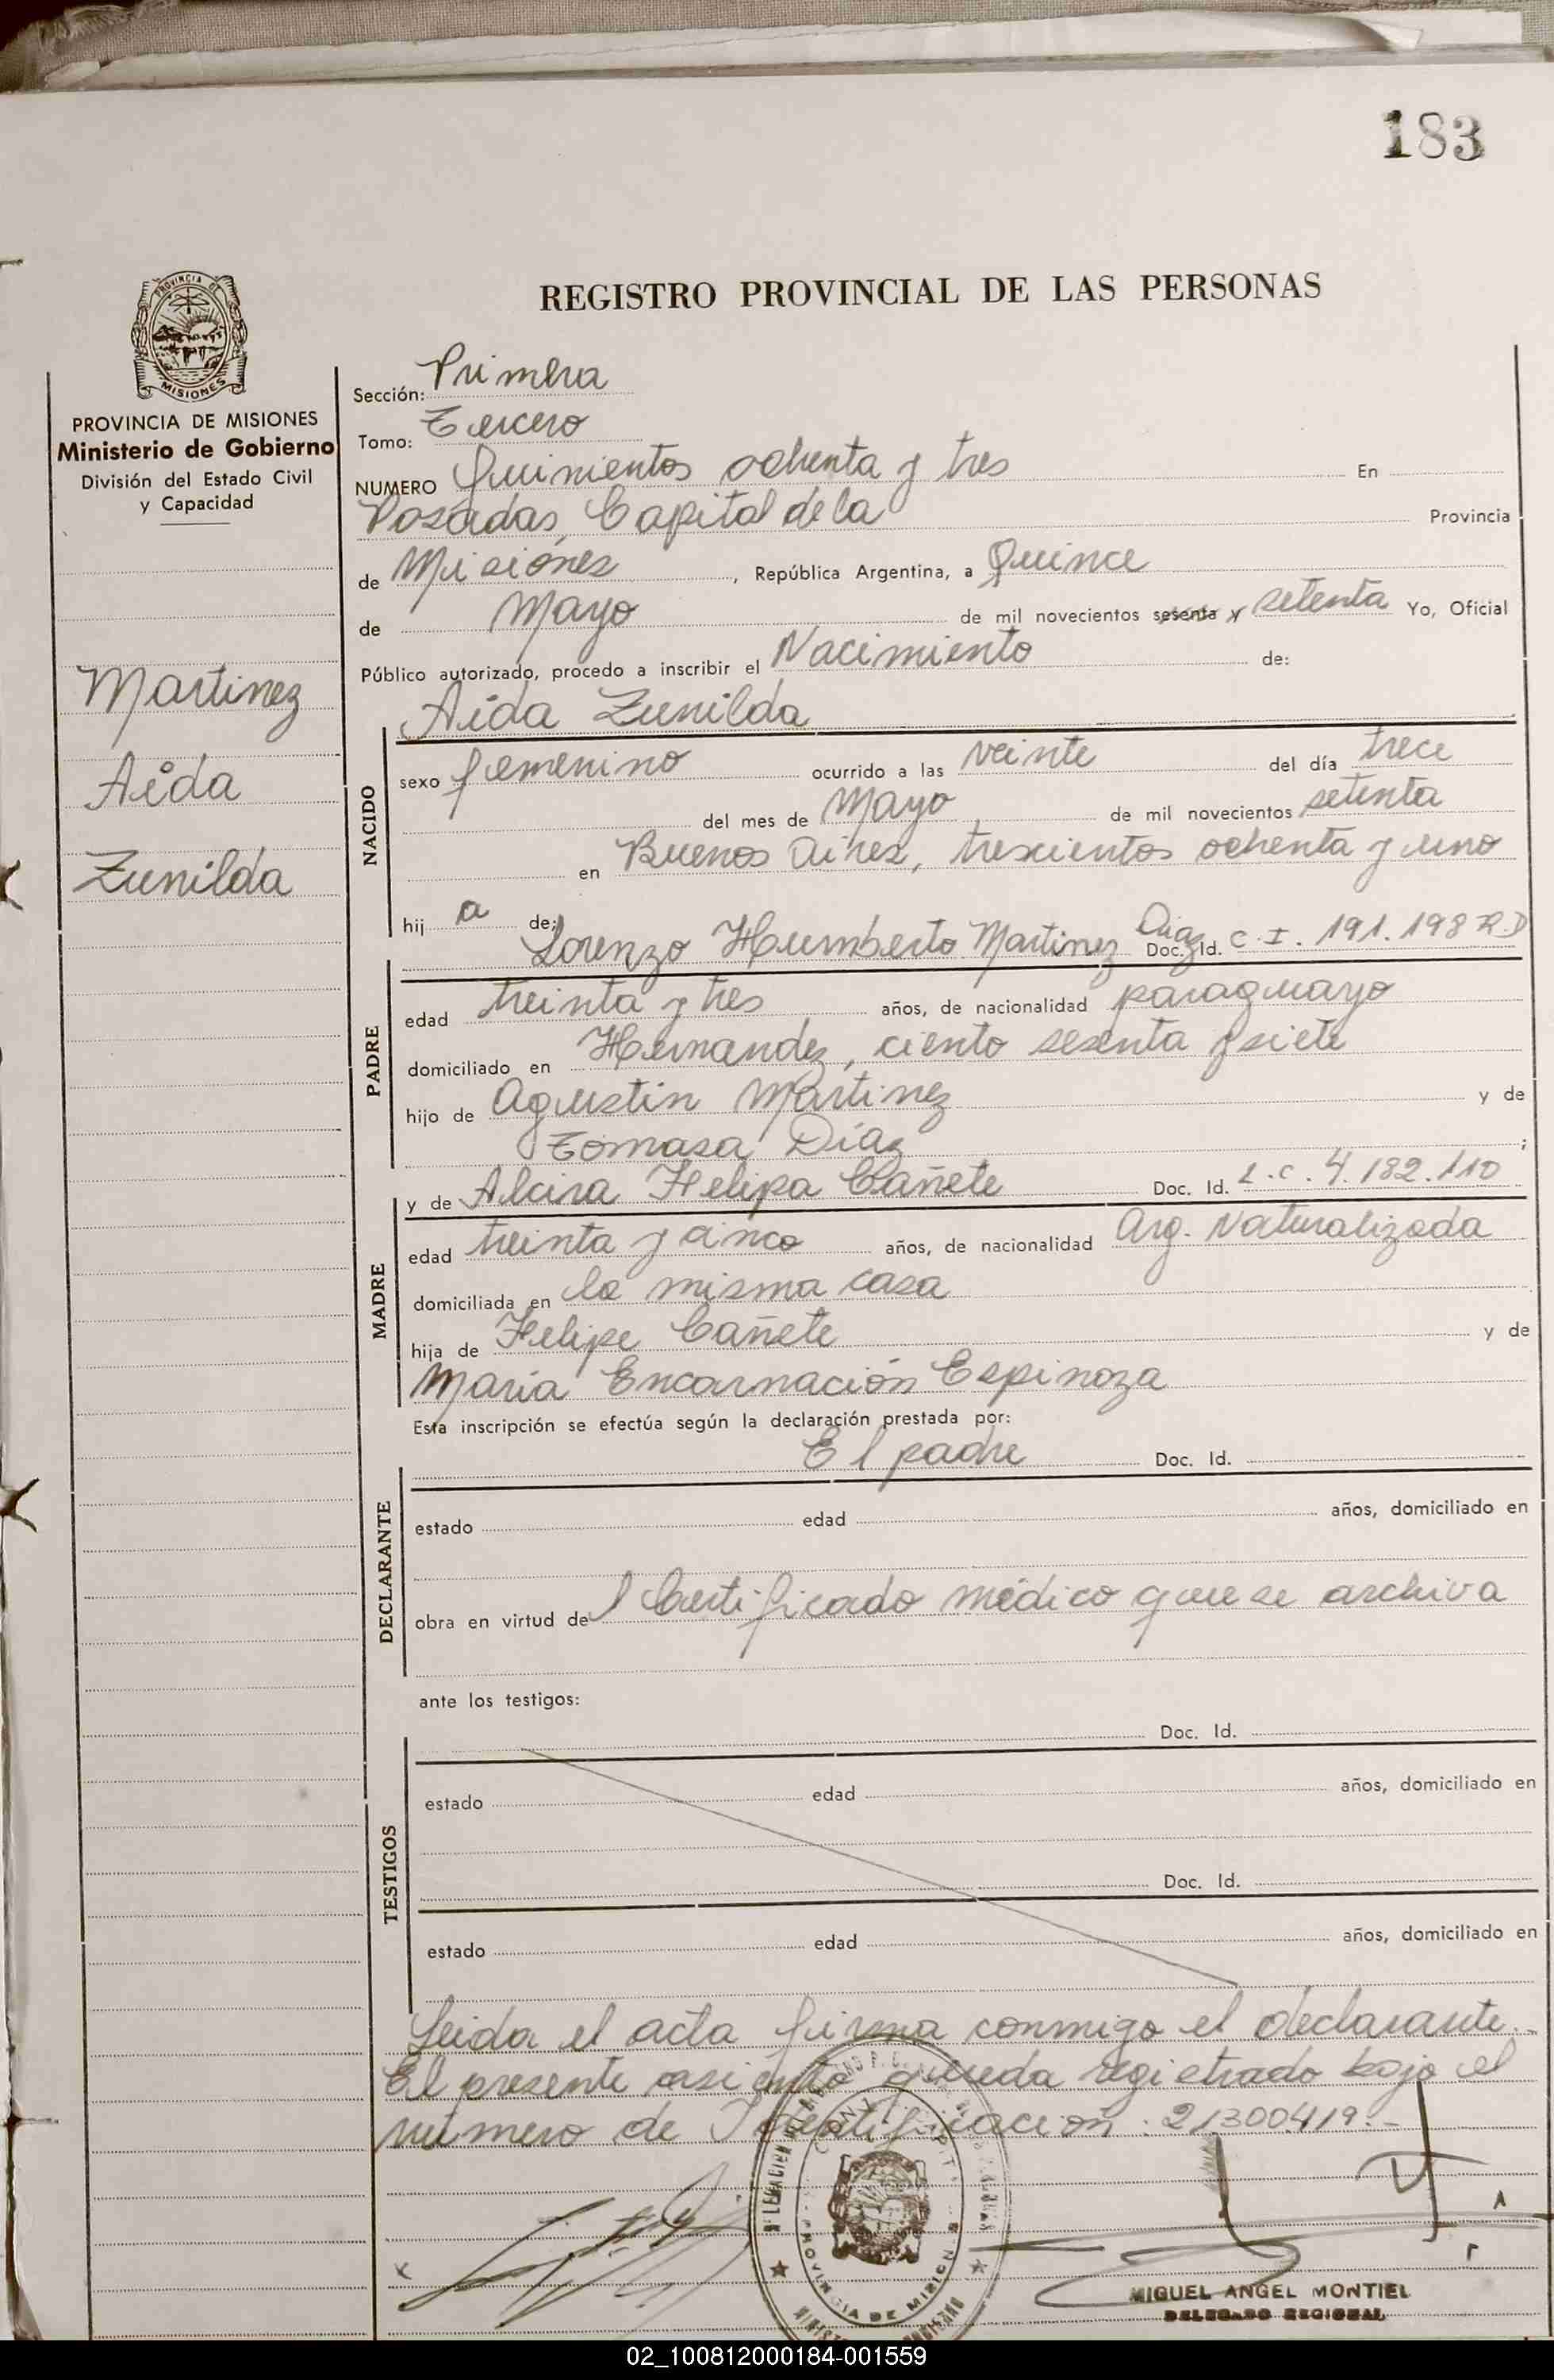 183
REGISTRO PROVINCIAL DE LAS PERSONAS
PROVINCIA DE
MISIONES
PROVINCIA DE MISIONES
Ministerio de Gobierno
División del Estado Civil
y Capacidad
Martinez
Aida
Zunilda
Sección: Primera
Tomo: Tercero
NUMERO Quinientos ochenta y tres En
Posadas, Capital de la Provincia
de Misiones, República Argentina, a Quince
de Mayo de mil novecientos sesenta y setenta Yo, Oficial
Público autorizado, procedo a inscribir el Nacimiento de:
Aida Zunilda
NACIDO
sexo femenino ocurrido a las veinte del día trece
del mes de Mayo de mil novecientos setenta
en Buenos Aires, trescientos ochenta y uno
hij a de:
Lorenzo Humberto Martinez Diaz Doc. Id. C.I. 191.198 R.D
PADRE
edad treinta y tres años, de nacionalidad paraguayo
domiciliado en Hernandez, ciento sesenta y siete
hijo de Agustin Martinez y de
Tomasa Díaz ;
y de Alcira Felipa Cañete Doc. Id. L.C. 4.182.110
MADRE
edad treinta y cinco años, de nacionalidad Arg. Naturalizada
domiciliada en la misma casa
hija de Felipe Cañete y de
María Encarnación Espinoza
Esta inscripción se efectúa según la declaración prestada por:
El padre Doc. Id.
DECLARANTE
estado edad años, domiciliado en
obra en virtud del Certificado médico que se archiva
ante los testigos:
Doc. Id.
TESTIGOS
estado edad años, domiciliado en
Doc. Id.
estado edad años, domiciliado en
Leida el acta firma conmigo el declarante.
El presente asiento queda registrado bajo el
número de Identificación: 21300419.-
PROVINCIA DE MISIONES
MIGUEL ANGEL MONTIEL
DELEGADO REGIONAL
02_100812000184-001559